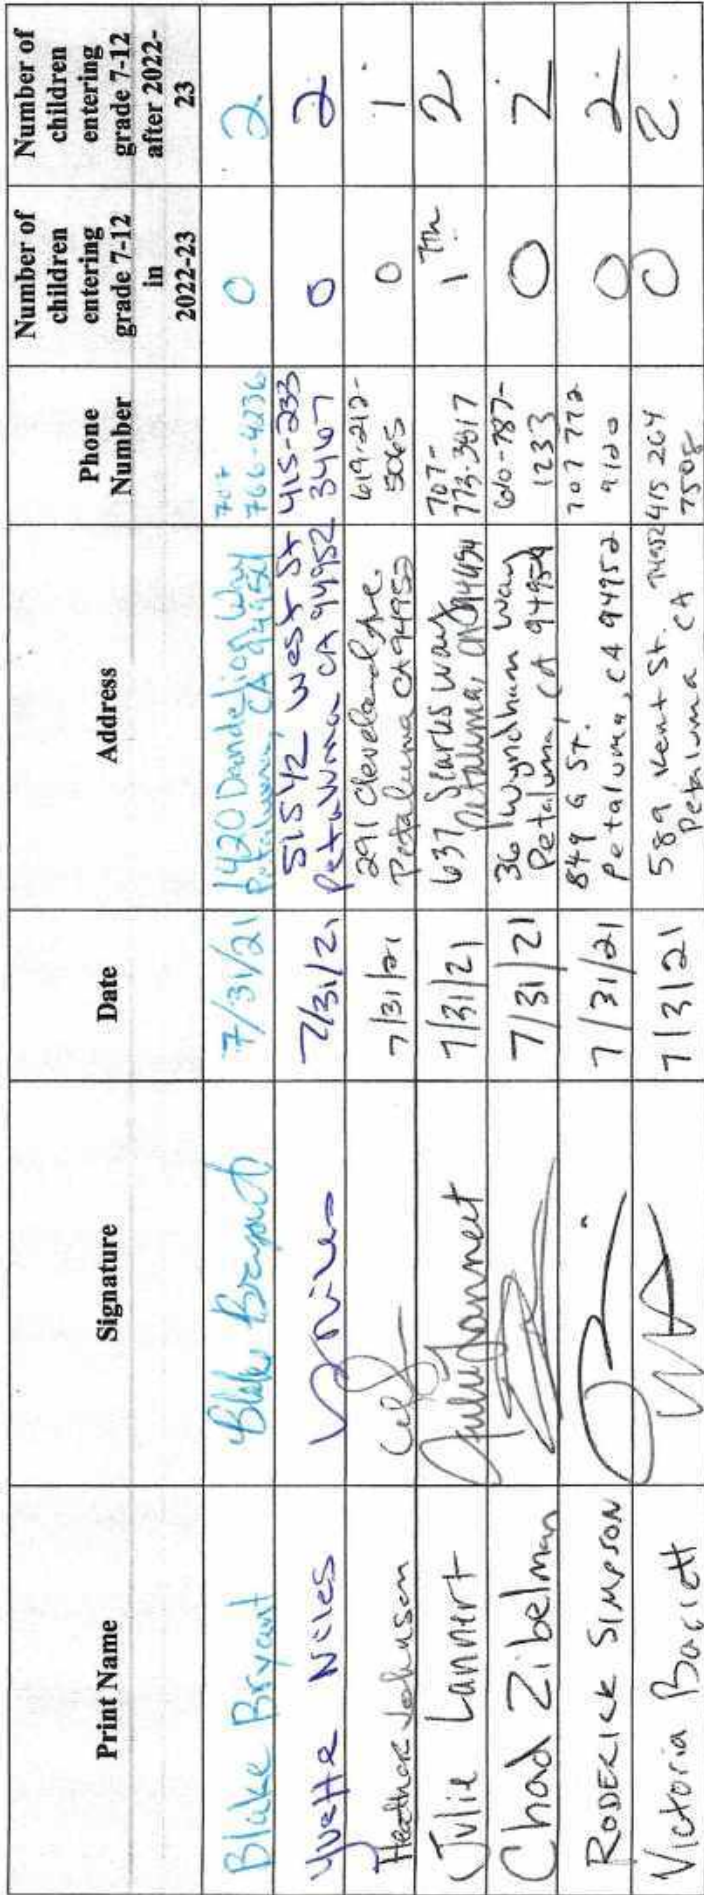 Print Name
Signature
Date
Address
Phone
Number
Number of
children
entering
grade 7-12
in
2022-23
Number of
children
entering
grade 7-12
after 2022-
23
Blake Bryant
Blake Bryant
7/31/21
1420 Dandelion Way
Petaluma, CA 94954
707
766-4236
0
2
Yvette Niles
7/31/21
515 1/2 West St
Petaluma CA 94952
415-233
3467
0
2
Heather Johnson
7/31/21
291 Cleveland Ave.
Petaluma CA 94952
619-212-
5065
0
1
Julie Lannert
Julie Lannert
7/31/21
637 Searles Way
Petaluma, CA
707-
773-3817
1 7th
2
Chad Zibelman
7/31/21
36 Wyndham Way
Petaluma, CA 94954
610-787-
1233
0
2
RODERICK SIMPSON
7/31/21
849 G St.
Petaluma, CA 94952
707 772
9120
0
2
Victoria
7/31/21
589 Kent St. 94952
Petaluma CA
415 264
7508
0
2